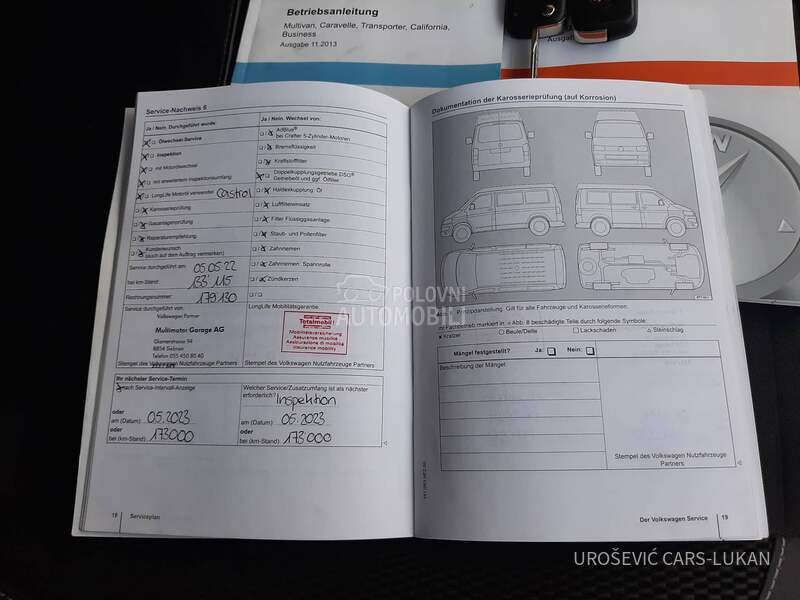 Betriebsanleitung
Multivan, Caravelle, Transporter, California,
Business
Ausgabe 11.2013
Ausgabe
Service-Nachweis 6
Ja / Nein. Durchgeführt wurde
Ölwechsel Service
Inspektion
mit Motorölwechsel
mit erweitertem Inspektionsumfang
LongLife Motoröl verwendet Castrol
Karosserieprüfung
Gasanlagenprüfung
Reparaturempfehlung
Kundenwunsch
(auch auf dem Auftrag vermerken)
Service durchgeführt am: 05.05.22
bei km-Stand: 133'115
Rechnungsnummer: 179130
Service durchgeführt von:
Volkswagen Partner
Multimotor Garage AG
Glarnerstrasse 94
8854 Siebnen
Telefon 055 450 80 40
Stempel des Volkswagen Nutzfahrzeuge Partners
Ja / Nein. Wechsel von:
AdBlue®
bei Crafter 5-Zylinder-Motoren
Bremsflüssigkeit
Kraftstofffilter
Doppelkupplungsgetriebe DSG®
Getriebeöl und ggf. Ölfilter
Haldexkupplung: Öl
Luftfiltereinsatz
Filter Flüssiggasanlage
Staub- und Pollenfilter
Zahnriemen
Zahnriemen, Spannrolle
Zündkerzen
LongLife Mobilitätsgarantie:
Totalmobil!
Mobilitätsversicherung
Assurance mobilité
Assicurazione di mobilità
Insurance mobility
Stempel des Volkswagen Nutzfahrzeuge Partners
Ihr nächster Service-Termin
nach Service-Intervall-Anzeige
oder
am (Datum) 05.2023
oder
bei (km-Stand): 173000
Welcher Service/Zusatzumfang ist als nächster
erforderlich? Inspektion
am (Datum) 05.2023
oder
bei (km-Stand): 173000
18 Serviceplan
Dokumentation der Karosserieprüfung (auf Korrosion)
Gilt für alle Fahrzeuge und Karosserieformen.
Ihr Fachbetrieb markiert in Abb. 8 beschädigte Teile durch folgende Symbole:
× Kratzer ○ Beule/Delle □ Lackschaden △ Steinschlag
Mängel festgestellt? Ja: Nein:
Beschreibung der Mängel
Stempel des Volkswagen Nutzfahrzeuge
Partners
Der Volkswagen Service 19
POLOVNI
AUTOMOBILI
UROŠEVIĆ CARS-LUKAN